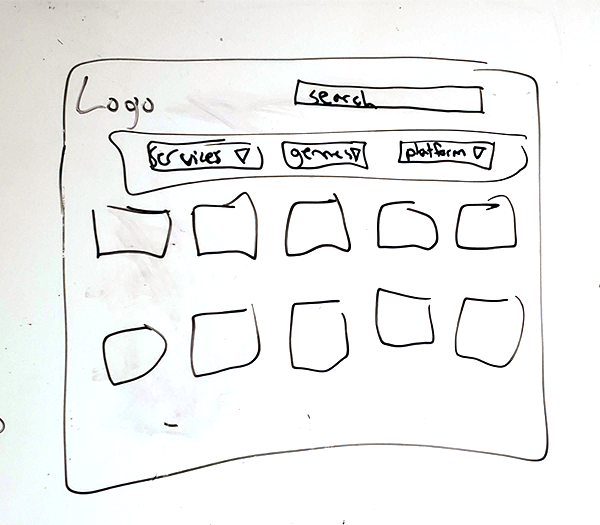 Logo
search
services
genres
platform